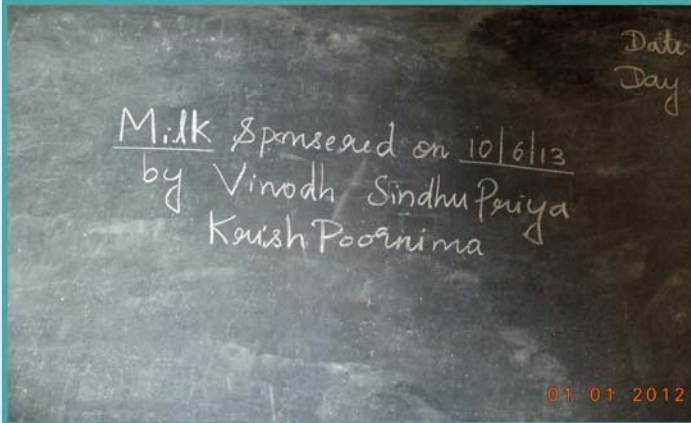 Date
Day
Milk Sponsered on 10/6/13
by Vinodh Sindhu Priya
Krish Poornima
01 01 2012